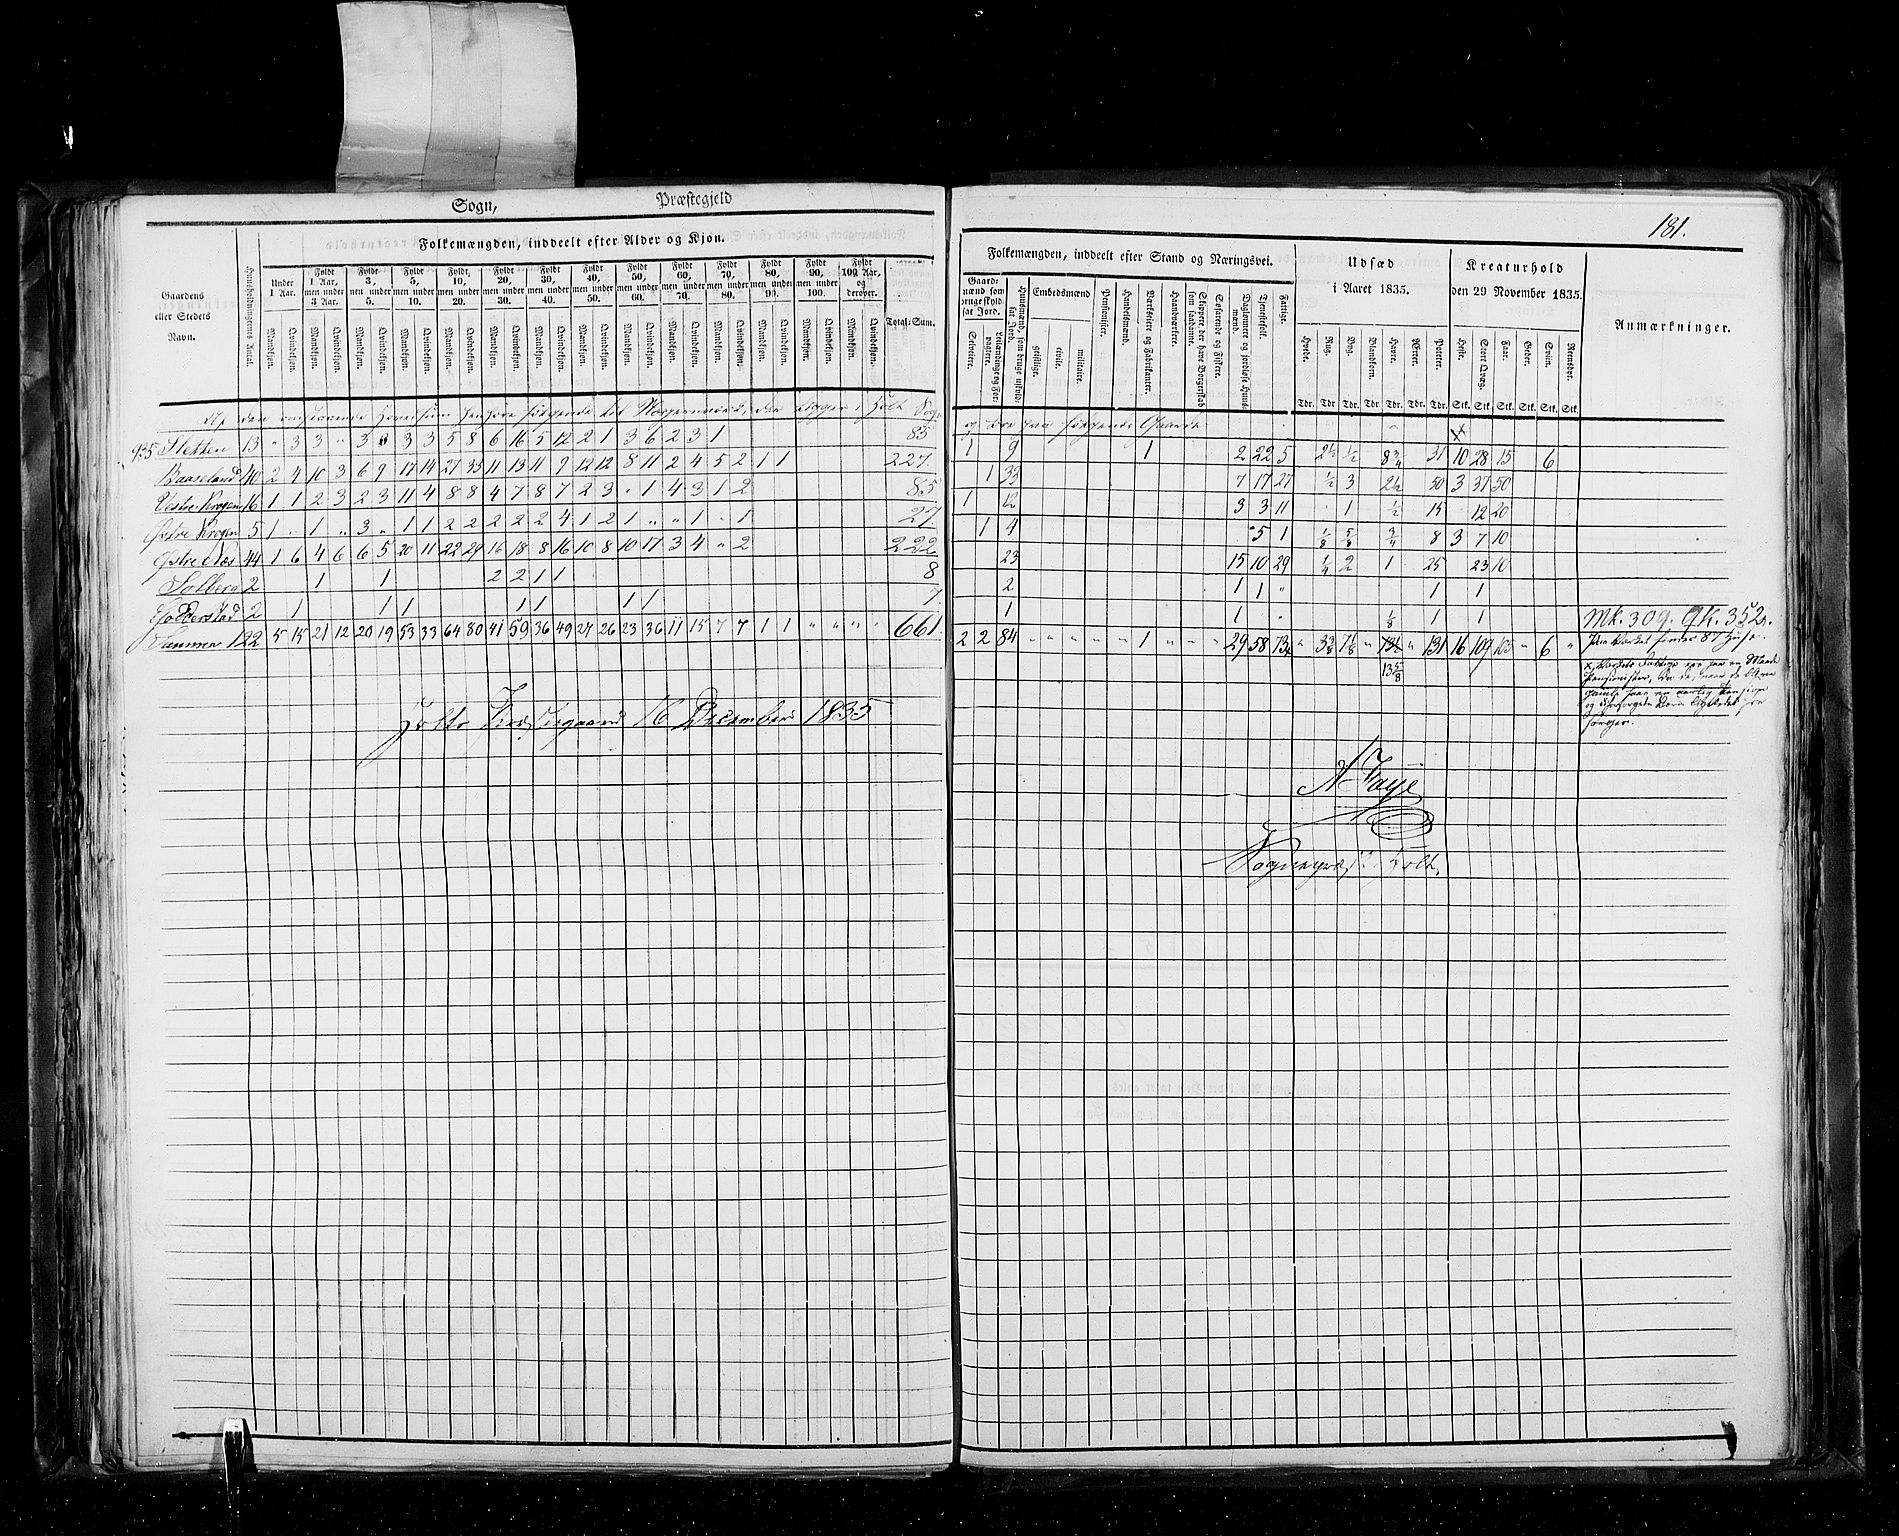 Sogn, Præstegjeld
181.
Folkemængden, inddeelt efter Alder og Kjøn.
Gaardens eller Stedets Navn.
Huusholdningernes Antal.
Under 1 Aar.
Fyldt 1 Aar, men under 3 Aar.
Fyldt 3, men under 5.
Fyldt 5, men under 10.
Fyldt 10, men under 20.
Fyldt 20, men under 30.
Fyldt 30, men under 40.
Fyldt 40, men under 50.
Fyldt 50, men under 60.
Fyldt 60, men under 70.
Fyldt 70, men under 80.
Fyldt 80, men under 90.
Fyldt 90, men under 100.
Fyldt 100 Aar, og derover.
Total-Sum.
Mandkjøn. Qvindekjøn. Mandkjøn. Qvindekjøn. Mandkjøn. Qvindekjøn. Mandkjøn. Qvindekjøn. Mandkjøn. Qvindekjøn. Mandkjøn. Qvindekjøn. Mandkjøn. Qvindekjøn. Mandkjøn. Qvindekjøn. Mandkjøn. Qvindekjøn. Mandkjøn. Qvindekjøn. Mandkjøn. Qvindekjøn. Mandkjøn. Qvindekjøn. Mandkjøn. Qvindekjøn. Mandkjøn. Qvindekjøn.
Folkemængden, inddeelt efter Stand og Næringsvei.
Gaardmænd som bruge skyldsat Jord.
Selveiere.
Leilændinge og Forpagtere.
Huusmænd, som bruge uskyldsat Jord.
Embedsmænd
geistlige.
civile.
militaire.
Pensionister.
Handelsmænd.
Værkseiere og Fabrikanter.
Haandværkere.
Skippere, der have Borgerskab som saadanne.
Søfarende og Fiskere.
Daglønnere og jordløse Huusmænd.
Tjenestefolk.
Fattige.
Udsæd i Aaret 1835.
Hvede. Rug. Byg. Blandkorn. Havre. Ærter. Poteter.
Tdr. Tdr. Tdr. Tdr. Tdr. Tdr. Tdr.
Kreaturhold den 29 November 1835.
Heste. Stort Qvæg. Faar. Geder. Sviin. Reensdyr.
Stk. Stk. Stk. Stk. Stk. Stk.
Anmærkninger.
Af den ovenstaaende Hovedsum henhøre følgende til Næs Jernværk, der ligger i Holt Sogn og boe paa følgende Gaarde
Sletten 13 " 3 3 " 3 8 3 3 5 8 6 16 5 12 2 1 3 6 2 3 1 85 1 9 1 2 22 5 2½ ½ 8¾ 31 10 28 15 6
Baaseland 40 2 4 10 3 6 9 17 14 27 33 11 13 11 9 12 12 8 11 2 4 5 2 1 1 227 1 33 7 17 27 ½ 3 2½ 50 3 37 50
Vestre Krogen 16 1 1 2 3 2 3 11 4 8 8 4 7 8 7 2 3 " 1 4 3 1 2 85 1 12 3 3 11 1 ½ 15 12 20
Østre Krogen 5 1 " 1 " 3 " 1 1 2 2 2 2 2 4 1 2 1 " " 1 " 1 27 1 4 5 1 ⅛ ⅝ ¾ 8 3 7 10
Østre Næs 44 1 6 4 6 6 5 20 11 22 29 16 18 8 16 10 8 10 17 3 4 " 2 222 23 15 10 29 ¼ 2 1 25 23 10
Solberg 2 1 1 2 2 1 1 8 2 1 1 " 1 1
2 1 1 1 1 1 1 1 7 1 1 " ⅛ 1 1
Summen 122 5 15 21 12 20 19 53 33 64 80 41 59 36 49 27 26 23 36 11 15 7 7 1 1 " " " " 661 2 2 84 " " " " " 1 " " " 29 58 73 " 3⅜ 7⅛ " 13½ " 131 16 109 105 " 6 "
13⅝
Mk. 309. Qk. 352.
87 Huse.
Holts Præstegaard 16 December 1835
A Faye
Sognepræst i Holt